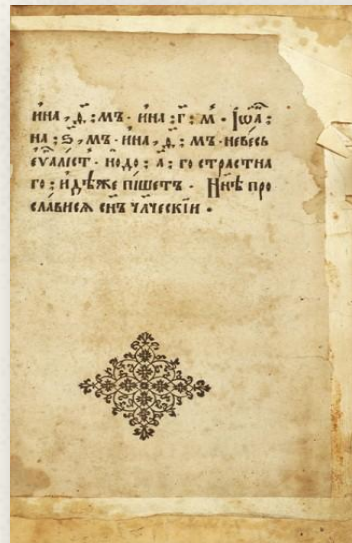 и҆на , д҃ : мъ · и҆на : г҃ : м҃ · І҆ѡа҃ :
на : ѕ҃ , мъ · и҆на , д҃ : мъ · невесь
еѵⷢ҇алі́ст · нодо : а҃ : го страстна
го : и҆дѣ́же пи́шетъ · Нн҃ѣ про
сла́висѧ сн҃ъ чл҃ческїи ·